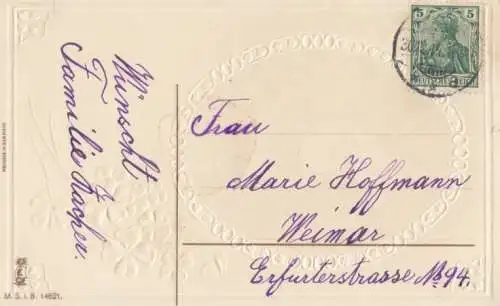 Wünscht
Familie Kacher.
Frau
Marie Hoffmann
Weimar
Erfurterstrasse No 94.
5 5
DEUTSCHES REICH
M. S. i. B. 14621.